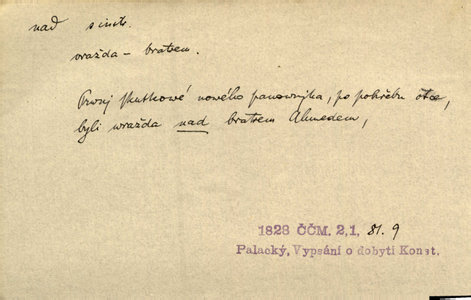 nad s instr.
vražda – bratrem.
Prvnj skutkowé nowého panownjka, po pohřebu otce,
byli wražda nad bratrem Ahmedem,
1828 ČČM. 2,1, 81. 9
Palacký, Vypsání o dobytí Konst.